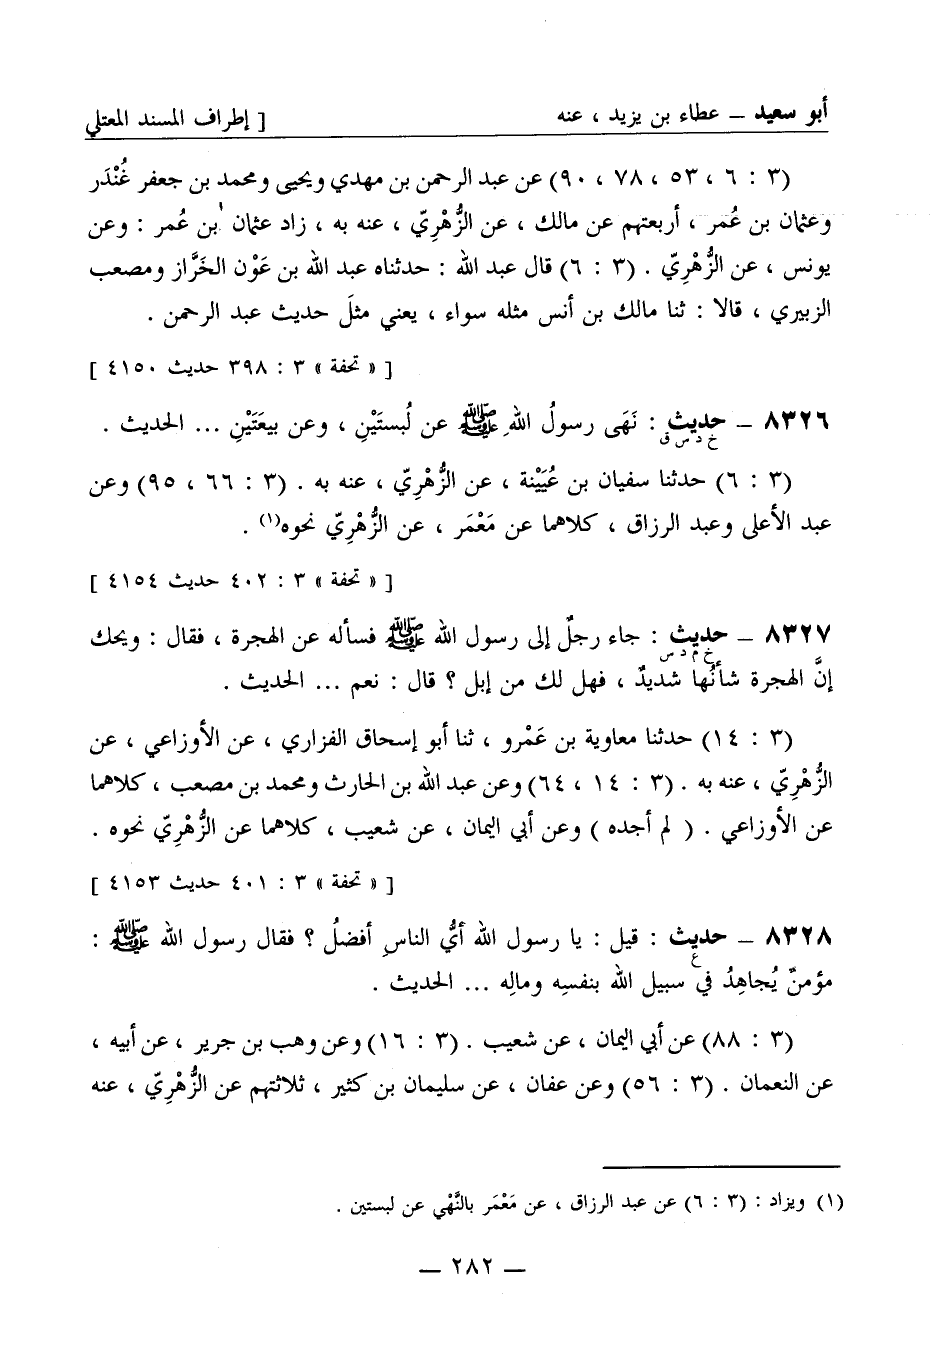 أبو سعيد – عطاء بن يزيد ، عنه [ إطراف المسند المعتلي
(٣ : ٦ ، ٥٣ ، ٧٨ ، ٩٠) عن عبد الرحمن بن مهدي ويحيى ومحمد بن جعفر غُنْدَر
وعثمان بن عُمر ، أربعتهم عن مالك ، عن الزُّهْرِيّ ، عنه به ، زاد عثمان بن عُمر : وعن
يونس ، عن الزُّهْرِيّ . (٣ : ٦) قال عبد الله : حدثناه عبد الله بن عَوْن الخَرَّاز ومصعب
الزبيري ، قالا : ثنا مالك بن أنس مثله سواء ، يعني مثلَ حديث عبد الرحمن .
[ « تحفة » ٣ : ٣٩٨ حديث ٤١٥٠ ]
٨٣٢٦ – حديث : نَهَى رسولُ اللهِ ﷺ عن لُبستَيْنِ ، وعن بيعَتَيْنِ ... الحديث .
خ د س ق
(٣ : ٦) حدثنا سفيان بن عُيَيْنة ، عن الزُّهْرِيّ ، عنه به . (٣ : ٦٦ ، ٩٥) وعن
عبد الأعلى وعبد الرزاق ، كلاهما عن مَعْمَر ، عن الزُّهْرِيّ نحوه(١) .
[ « تحفة » ٣ : ٤٠٢ حديث ٤١٥٤ ]
٨٣٢٧ – حديث : جاء رجلٌ إلى رسول الله ﷺ فسأله عن الهجرة ، فقال : ويحك
خ م د س
إنَّ الهجرة شأنُها شديدٌ ، فهل لك من إبل ؟ قال : نعم ... الحديث .
(٣ : ١٤) حدثنا معاوية بن عَمْرو ، ثنا أبو إسحاق الفزاري ، عن الأوزاعي ، عن
الزُّهْرِيّ ، عنه به . (٣ : ١٤ ، ٦٤) وعن عبد الله بن الحارث ومحمد بن مصعب ، كلاهما
عن الأوزاعي . ( لم أجده ) وعن أبي اليمان ، عن شعيب ، كلاهما عن الزُّهْرِيّ نحوه .
[ « تحفة » ٣ : ٤٠١ حديث ٤١٥٣ ]
٨٣٢٨ – حديث : قيل : يا رسول الله أيُّ الناسِ أفضلُ ؟ فقال رسول الله ﷺ :
ع
مؤمنٌ يُجاهِدُ في سبيل الله بنفسِه ومالِه ... الحديث .
(٣ : ٨٨) عن أبي اليمان ، عن شعيب . (٣ : ١٦) وعن وهب بن جرير ، عن أبيه ،
عن النعمان . (٣ : ٥٦) وعن عفان ، عن سليمان بن كثير ، ثلاثتهم عن الزُّهْرِيّ ، عنه
(١) ويزاد : (٣ : ٦) عن عبد الرزاق ، عن مَعْمَر بالنَّهْي عن لبستين .
– ٢٨٢ –